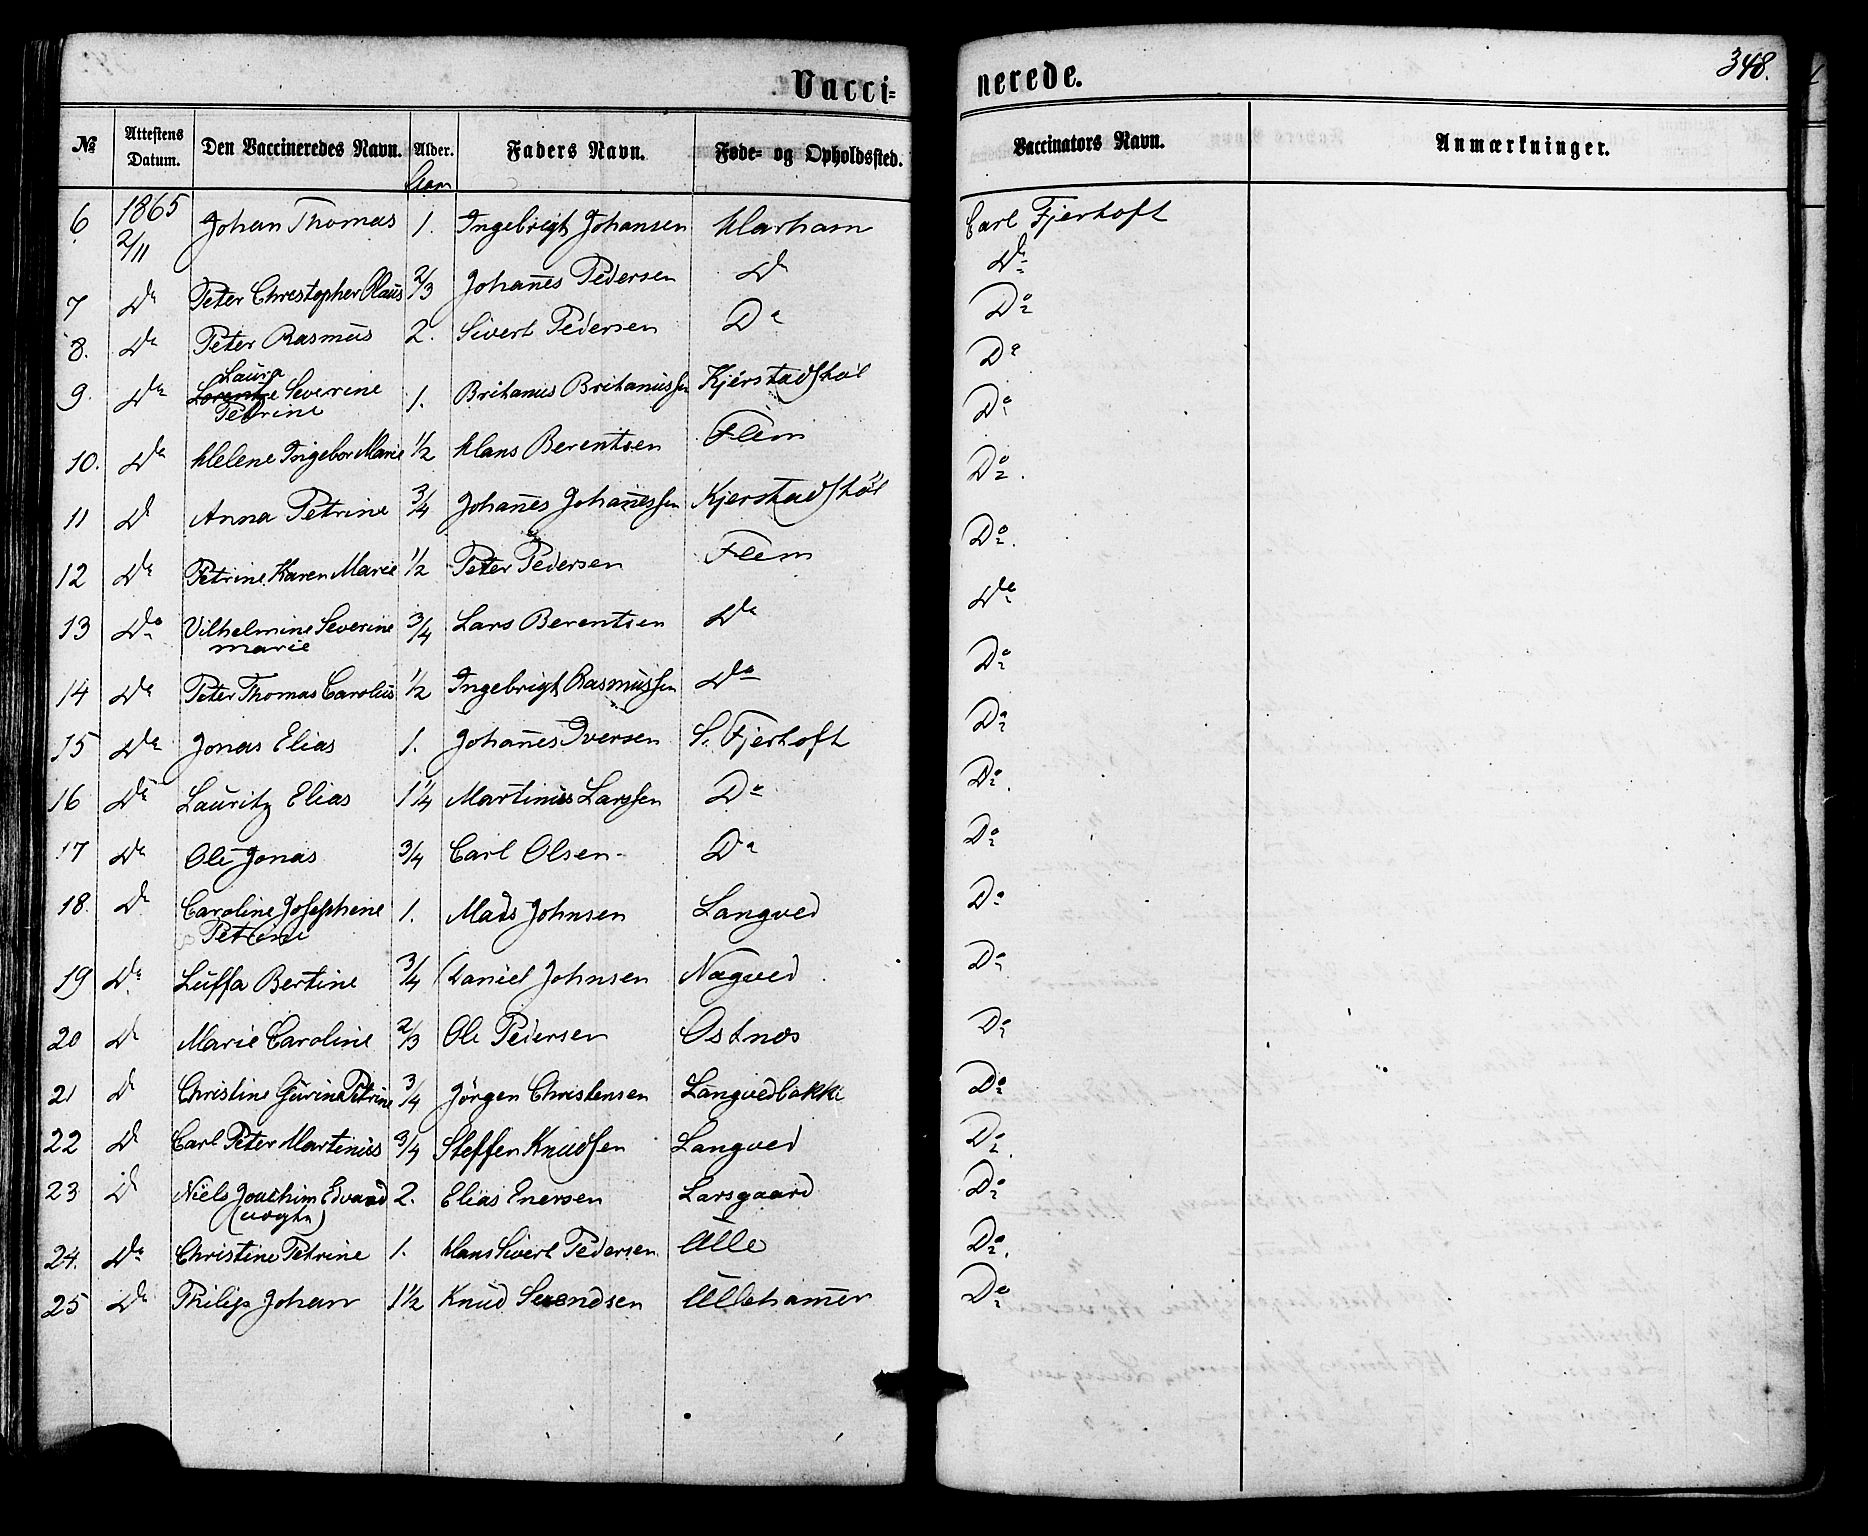 Vacci- nerede. 348.
№ Attestens Datum. Den Vaccineredes Navn. Alder. Faders Navn. Føde- og Opholdssted. Vaccinators Navn. Anmærkninger.
Aar
6 1865 2/11 Johan Thomas 1. Ingebrigt Johansen Harham Carl Fjertoft
Do
7 Do Peter Christopher Olaus 2/3 Johan̄es Pedersen Do Do
8. Do Peter Rasmus 2. Sivert Pedersen Do Do
Laura
9. Do Lorentze Severine 1. Britanus Britanussen Kjerstadstøl Do
Petrine
10. Do Helene Ingebor Marie 1/2 Hans Berentsen Flem Do.
11 Do Anna Petrine 3/4 Johan̄es Johan̄essen Kjerstadstøl Do.
12 Do Petrine Karen Marie 1/2 Peter Pedersen Flem Do
13 Do Vilhelmine Severine 3/4 Lars Berentsen Do Do
marie
14 Do Peter Thomas Carolus 1/2 Ingebrigt Rasmussen Do Do
15 Do Jonas Elias 1. Johan̄es Iversen S. Fjertoft Do.
16 Do Lauritz Elias 1 1/4 Martinus Larssen Do Do
17 Do Ole Jonas 3/4 Carl Olsen Do Do
18. Do Caroline Josephine 1. Mads Johnsen Langved Do
Petrine
19 Do Luffa Bertine 3/4 Daniel Johnsen Nogved Do
20 Do Marie Caroline 2/3 Ole Pedersen Ostnes Do
21 Do Christine Gurina Petrine 3/4 Jörgen Christensen Langvedbakke Do
22 Do Carl Peter Martinus 3/4 Steffen Knudsen Langved Do.
23 Do Niels Joachim Edvard 2. Elias Enersen Larsgaard Do
24. Do Christine Petrine 1. Hans Sivert Pedersen Ulle Do.
25 Do Philip Johan 1 1/2 Knud Svendsen Ullaham̄er Do